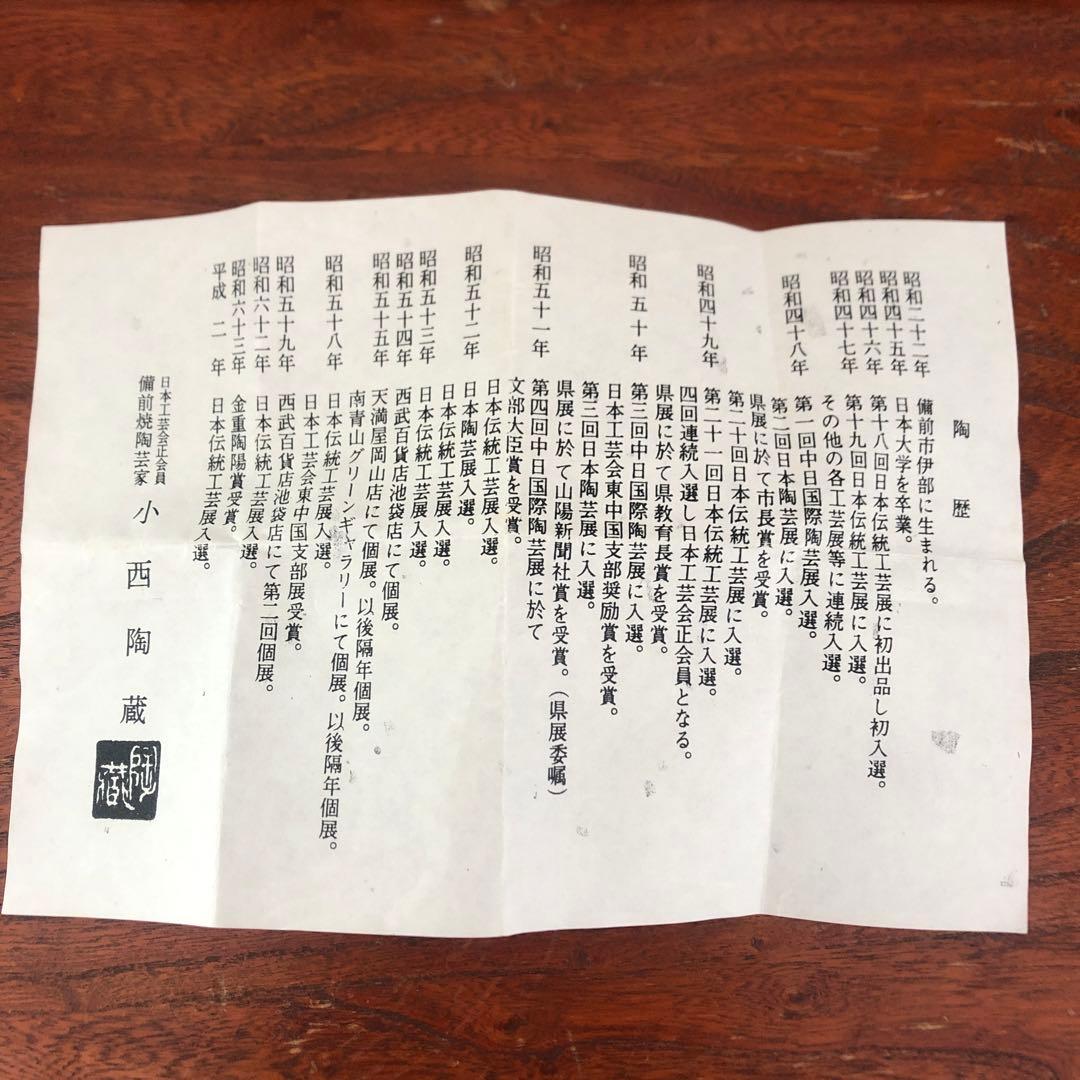 陶歴
昭和二十二年 備前市伊部に生まれる。
昭和四十五年 日本大学を卒業。
昭和四十六年 第十八回日本伝統工芸展に初出品し初入選。
昭和四十七年 第十九回日本伝統工芸展に入選。
その他の各工芸展等に連続入選。
昭和四十八年 第一回中日国際陶芸展入選。
第二回日本陶芸展に入選。
県展に於て市長賞を受賞。
第二十回日本伝統工芸展に入選。
昭和四十九年 第二十一回日本伝統工芸展に入選。
四回連続入選し日本工芸会正会員となる。
県展に於て県教育長賞を受賞。
昭和五十年 第三回中日国際陶芸展に入選。
日本工芸会東中国支部奨励賞を受賞。
第三回日本陶芸展に入選。
県展に於て山陽新聞社賞を受賞。（県展委嘱）
昭和五十一年 第四回中日国際陶芸展に於て
文部大臣賞を受賞。
日本伝統工芸展入選。
昭和五十二年 日本陶芸展入選。
日本伝統工芸展入選。
昭和五十三年 日本伝統工芸展入選。
昭和五十四年 西武百貨店池袋店にて個展。
昭和五十五年 天満屋岡山店にて個展。以後隔年個展。
南青山グリーンギャラリーにて個展。以後隔年個展。
昭和五十八年 日本伝統工芸展入選。
日本工芸会東中国支部展受賞。
昭和五十九年 西武百貨店池袋店にて第二回個展。
昭和六十二年 日本伝統工芸展入選。
昭和六十三年 金重陶陽賞受賞。
平成二年 日本伝統工芸展入選。
日本工芸会正会員
備前焼陶芸家 小西陶蔵
陶蔵